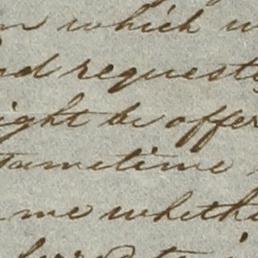 which
requests
ight be offer
sometime
me wheth